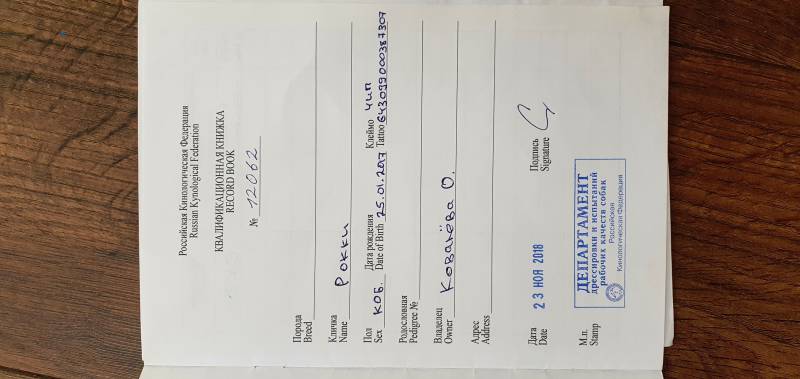 Российская Кинологическая Федерация
Russian Kynological Federation
КВАЛИФИКАЦИОННАЯ КНИЖКА
RECORD BOOK
№ 12062
Порода
Breed
Кличка
Name Рокки
Пол Дата рождения Клеймо чип
Sex коб. Date of Birth 25.01.2017 Tattoo 643099000387307
Родословная
Pedigree №
Владелец
Owner Ковалёва О.
Адрес
Address
Дата Подпись
Date 23 НОЯ 2018 Signature
М.п.
Stamp
ДЕПАРТАМЕНТ
дрессировки и испытаний
рабочих качеств собак
Российская
Кинологическая Федерация